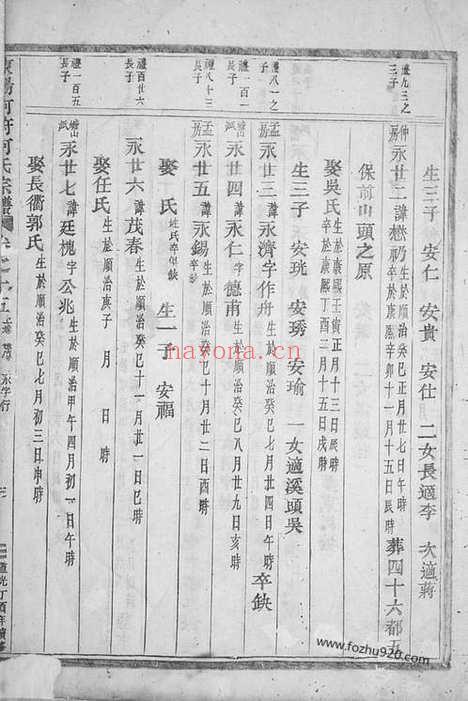 禮九三之三子
生三子 安仁 安貴 安仕 二女長適李 次適蔣
仲房永廿二諱懋礽生於順治癸巳正月廿七日午時卒於康熙辛卯十一月十五日辰時葬四十六都五
保前山頭之原
娶吳氏生於康熙壬寅正月十三日辰時卒於康熙丁酉三月十五日戌時
生三子 安珖 安琇 安瑜 一女適溪頭吳
禮八一之子
孟房永廿三諱永濟字作舟生於順治癸巳八月廿四時卒缺
禮一百一長子
永廿四諱永仁字德甫生於順治癸巳八月廿九日亥時
禮八十三長子
孟房永廿五諱永錫生於順治癸巳十月廿二日酉時
娶 氏姓氏卒俱缺 生一子 安福
禮百廿六長子
永廿六諱茂春生於順治癸巳十一月廿一日巳時
娶任氏生於順治庚子 月 日 時
禮一百五長子
永廿七諱廷槐字公兆生於順治甲午四月初一日午時
娶長衢郭氏生於順治癸巳七月初三日申時
東陽何府何氏宗譜
永字行
道光丁酉年續修
hayona.com.cn
www.fozhu920.com